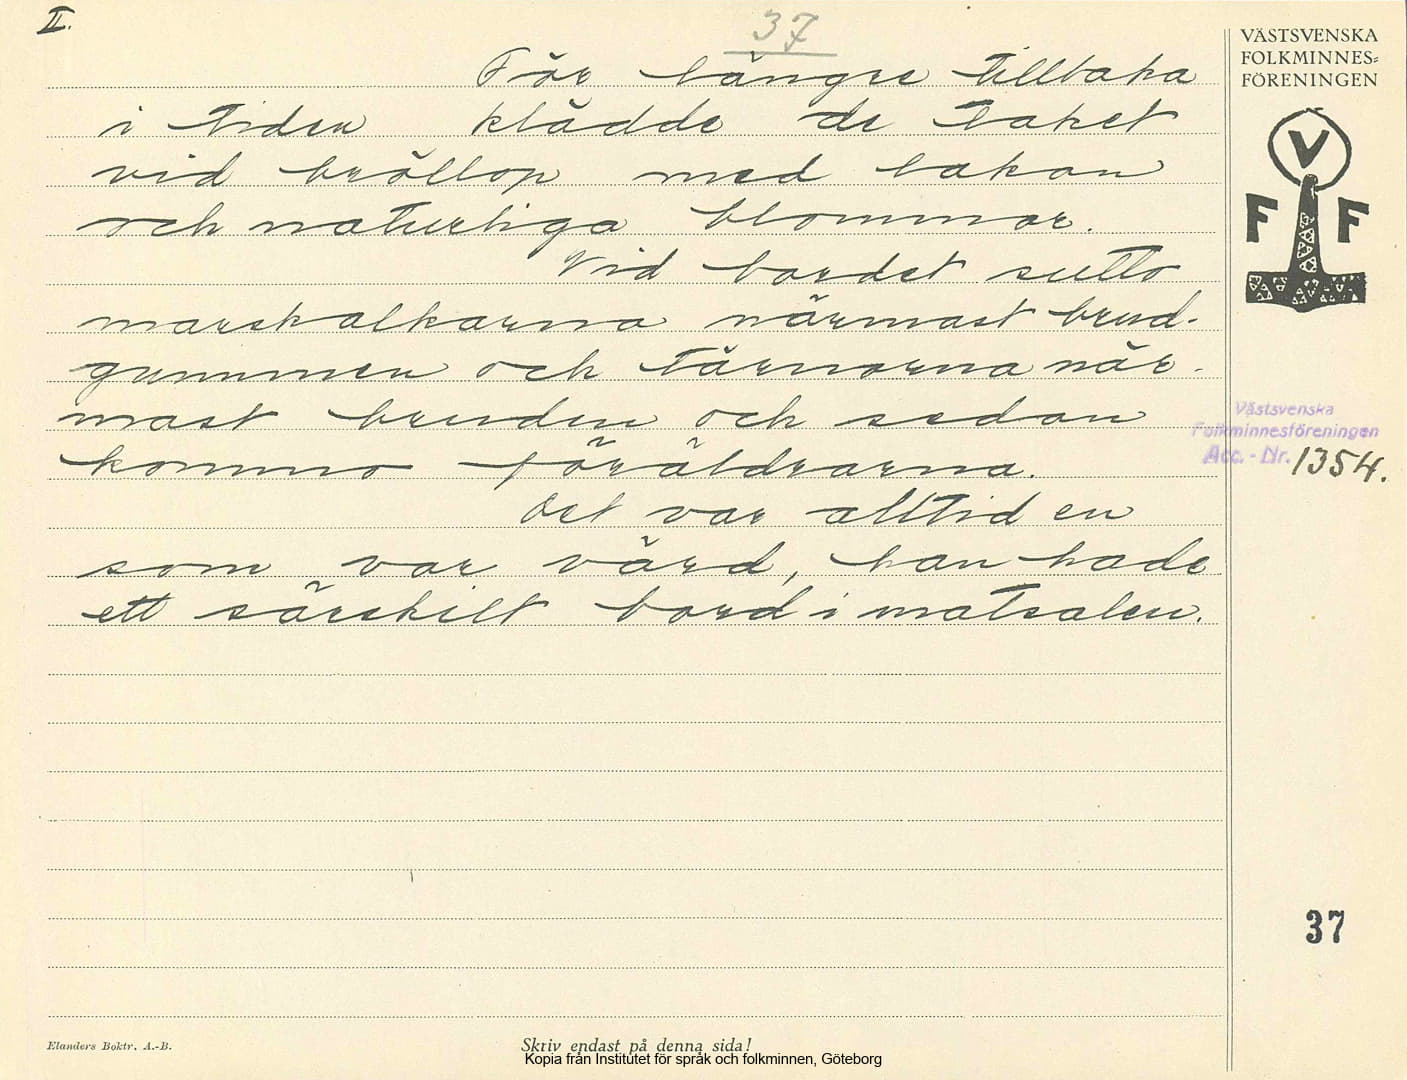 II.
37
För längre tillbaka
i tiden klädde de taket
vid bröllop med lakan
och naturliga blommor.
Vid bordet sutto
marskalkarna närmast brud-
gummen och tärnorna när-
mast bruden och sedan
kommo föräldrarna.
Det var alltid en
som var värd, han hade
ett särskilt bord i matsalen.
VÄSTSVENSKA
FOLKMINNES=
FÖRENINGEN
V
F F
Västsvenska
Folkminnesföreningen
Acc. - Nr. 1354.
37
Elanders Boktr. A.-B.
Skriv endast på denna sida!
Kopia från Institutet för språk och folkminnen, Göteborg